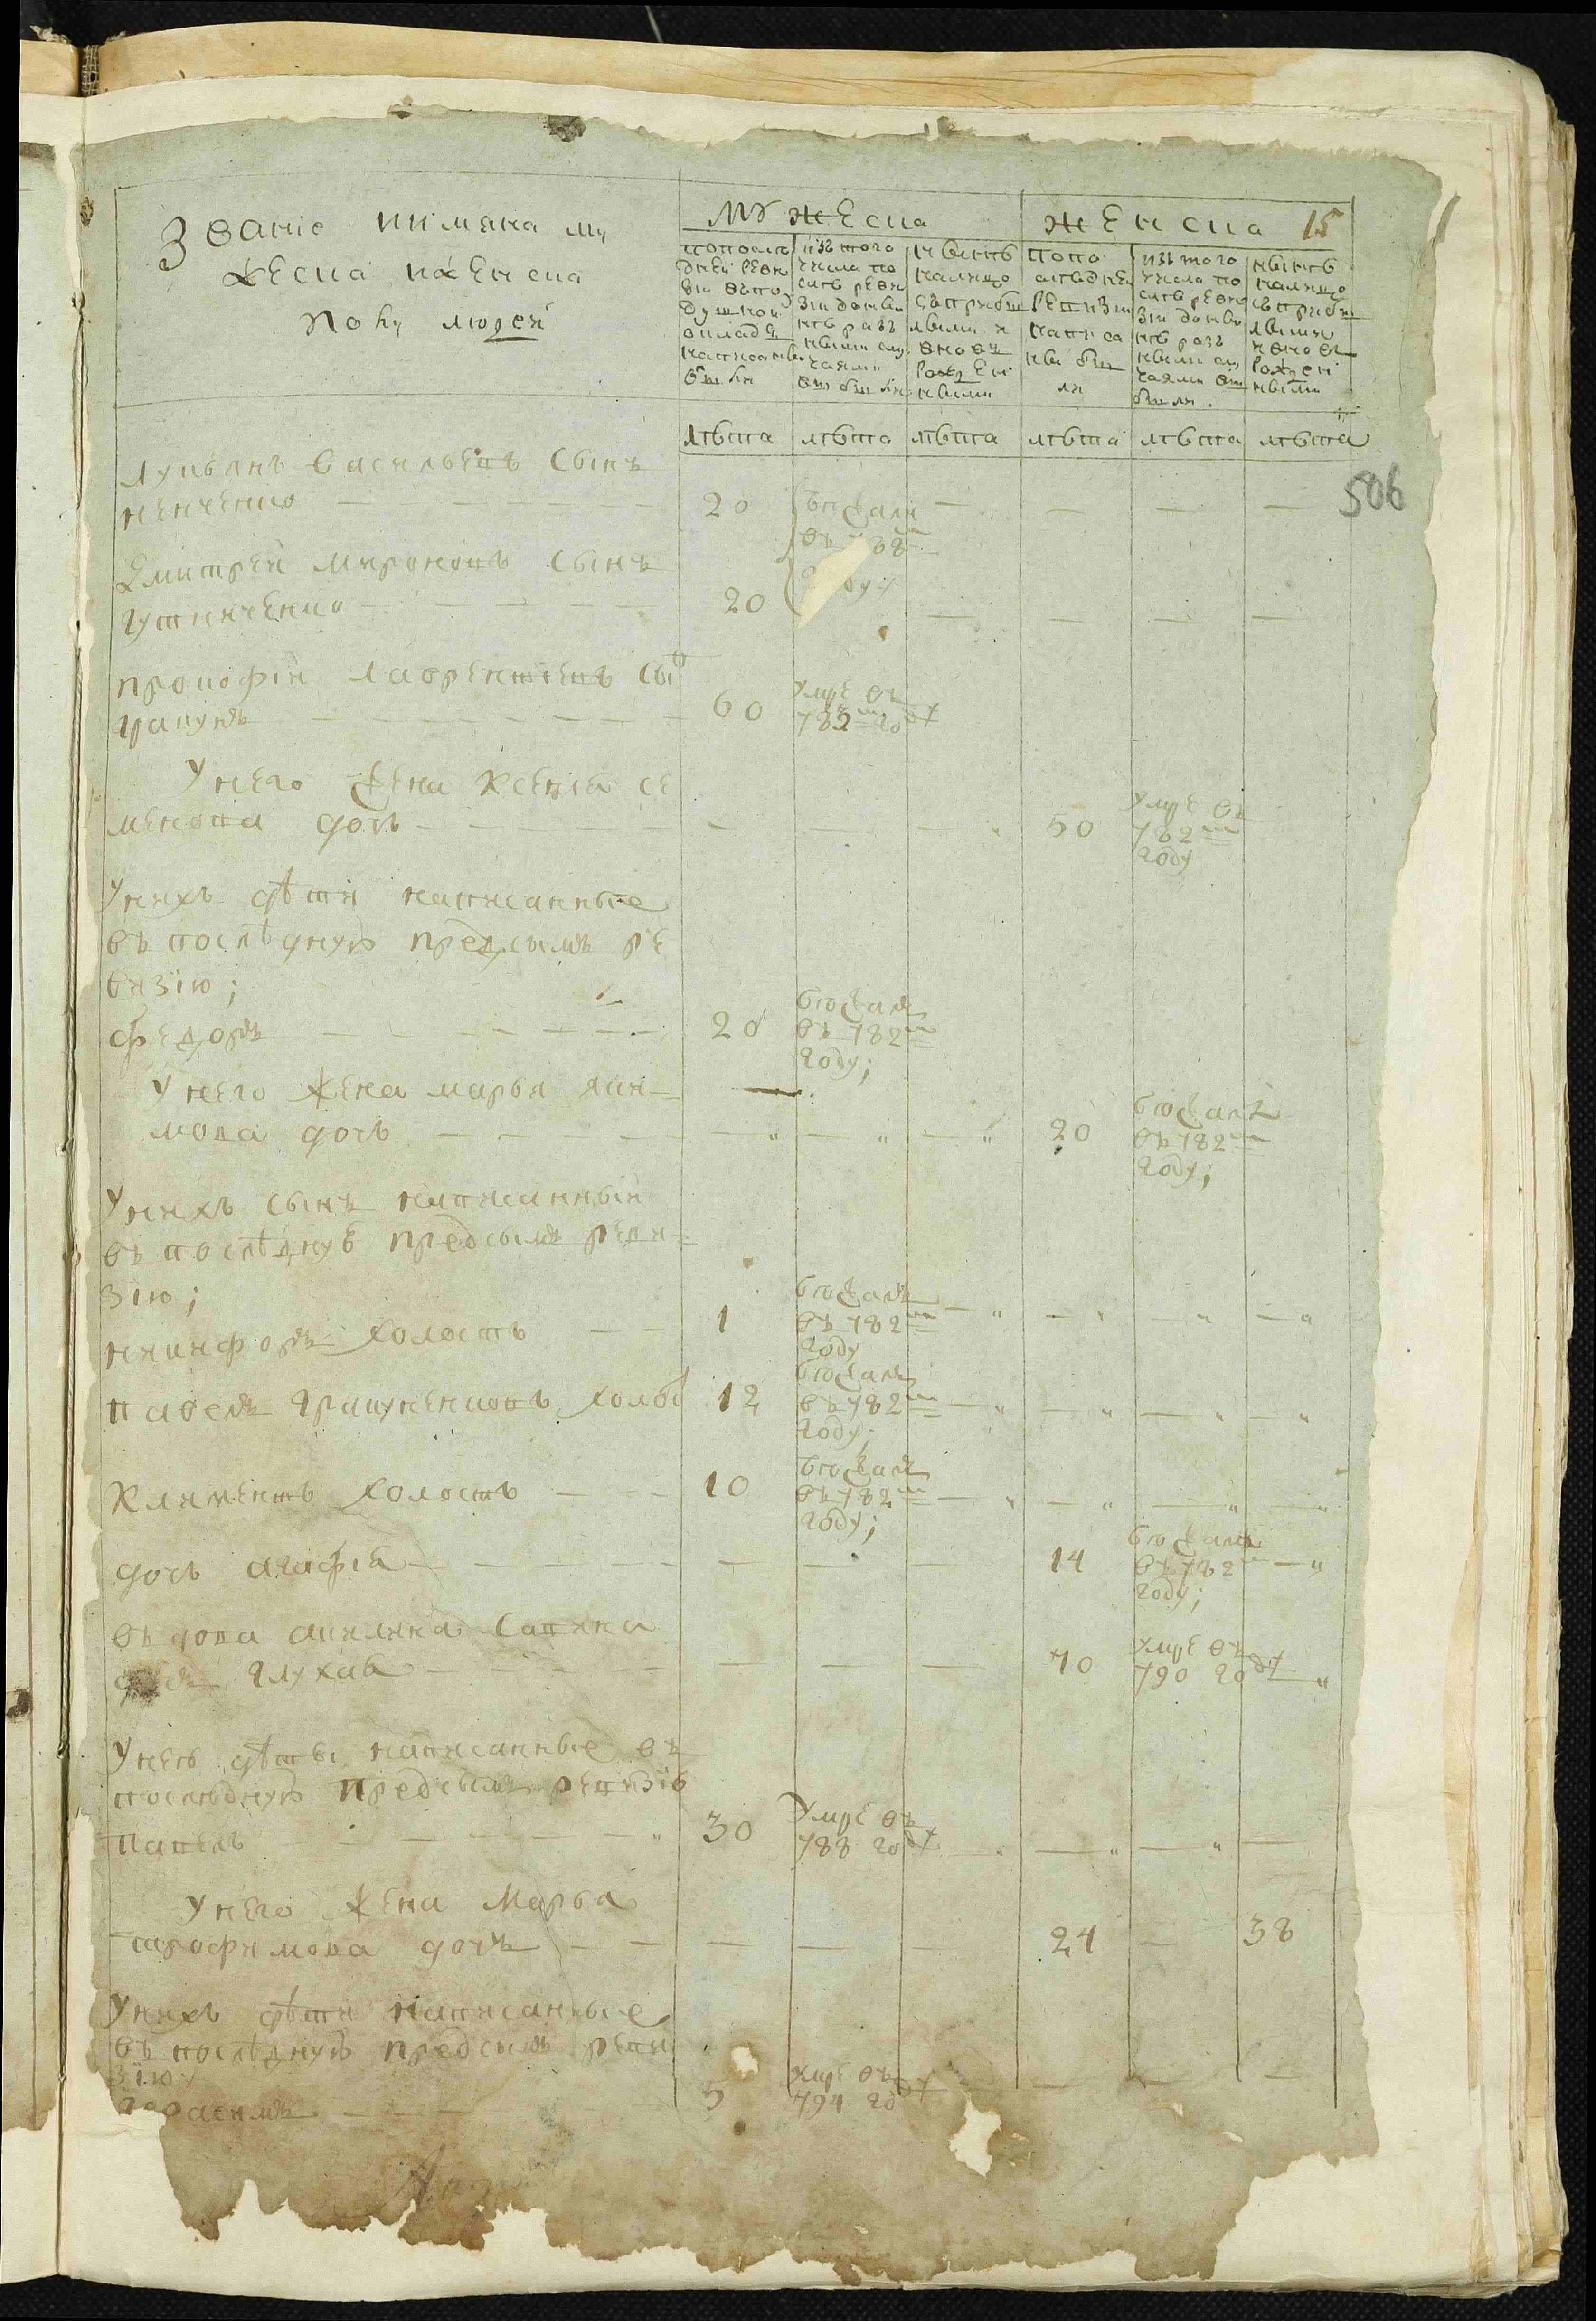 Званіе иимяна му
жеска иженска
полу людей
Мужеска
женска 15
попослѣ
дней реви
зіи въпо
душной
окладъ
написаны
были
изъ того
числа по
слѣ реви
зіи до ны
нѣ разъ
ными слу
чаями
выбыли
нынѣ
налицо
съприбы
лыми и
вновь
рожден
ными
попо
слѣдней
ревизіи
написа
ны бы
ли
изъ того
числа по
слѣ реви
зіи до ны
нѣ разъ
ными слу
чаями вы
были.
нынѣ
налицо
съприбы
лыми
ивновь
рожден
ными
лѣта лѣта лѣта лѣта лѣта лѣта
506
Лукьянъ васильевъ сынъ
20 бѣжали
въ 788м
году;
Дмитрей мироновъ сынъ
20
прокофій лаврентіевъ сы
60 умре въ
782м году
Унего жена Ксенія се
менова дочь 50 умре въ
782м
году
Унихъ дѣти написанные
въ послѣдную предсымъ ре
визію;
Федоръ 20 бежалъ
въ 782м
году;
Унего жена марья яки
мова дочь 20 бежала
въ 782м
году;
Унихъ сынъ написанный
въ послѣдную предсымъ реви
зію;
никифоръ холостъ 1 бежалъ
въ 782м
году
павелъ 12 бежалъ
въ 782м
году;
Климентъ холостъ 10 бежалъ
въ 782м
году;
дочь агафія 14 бежала
въ 782м
году;
въдова акилина савина
глухая 70 умре въ
790 году
Унеѣ дѣты написанные въ
послѣдную предсымъ ревизію
Павелъ 30 Умре въ
788 году
Унего жена Марья
трофимова дочъ 24 38
Унихъ дѣти написанные
въ послѣдную предсымъ реви
зію
герасимъ 5 умре въ
794 году